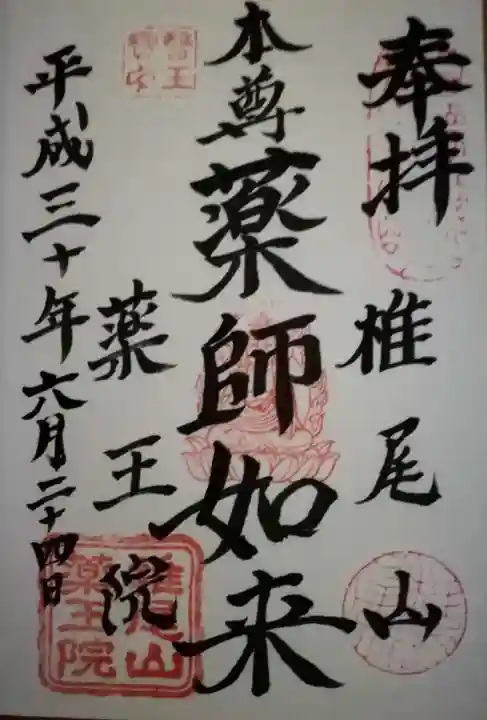 奉拝
椎尾山
本尊薬師如来
薬王院
平成三十年六月二十四日
醫王
椎尾山
薬王院